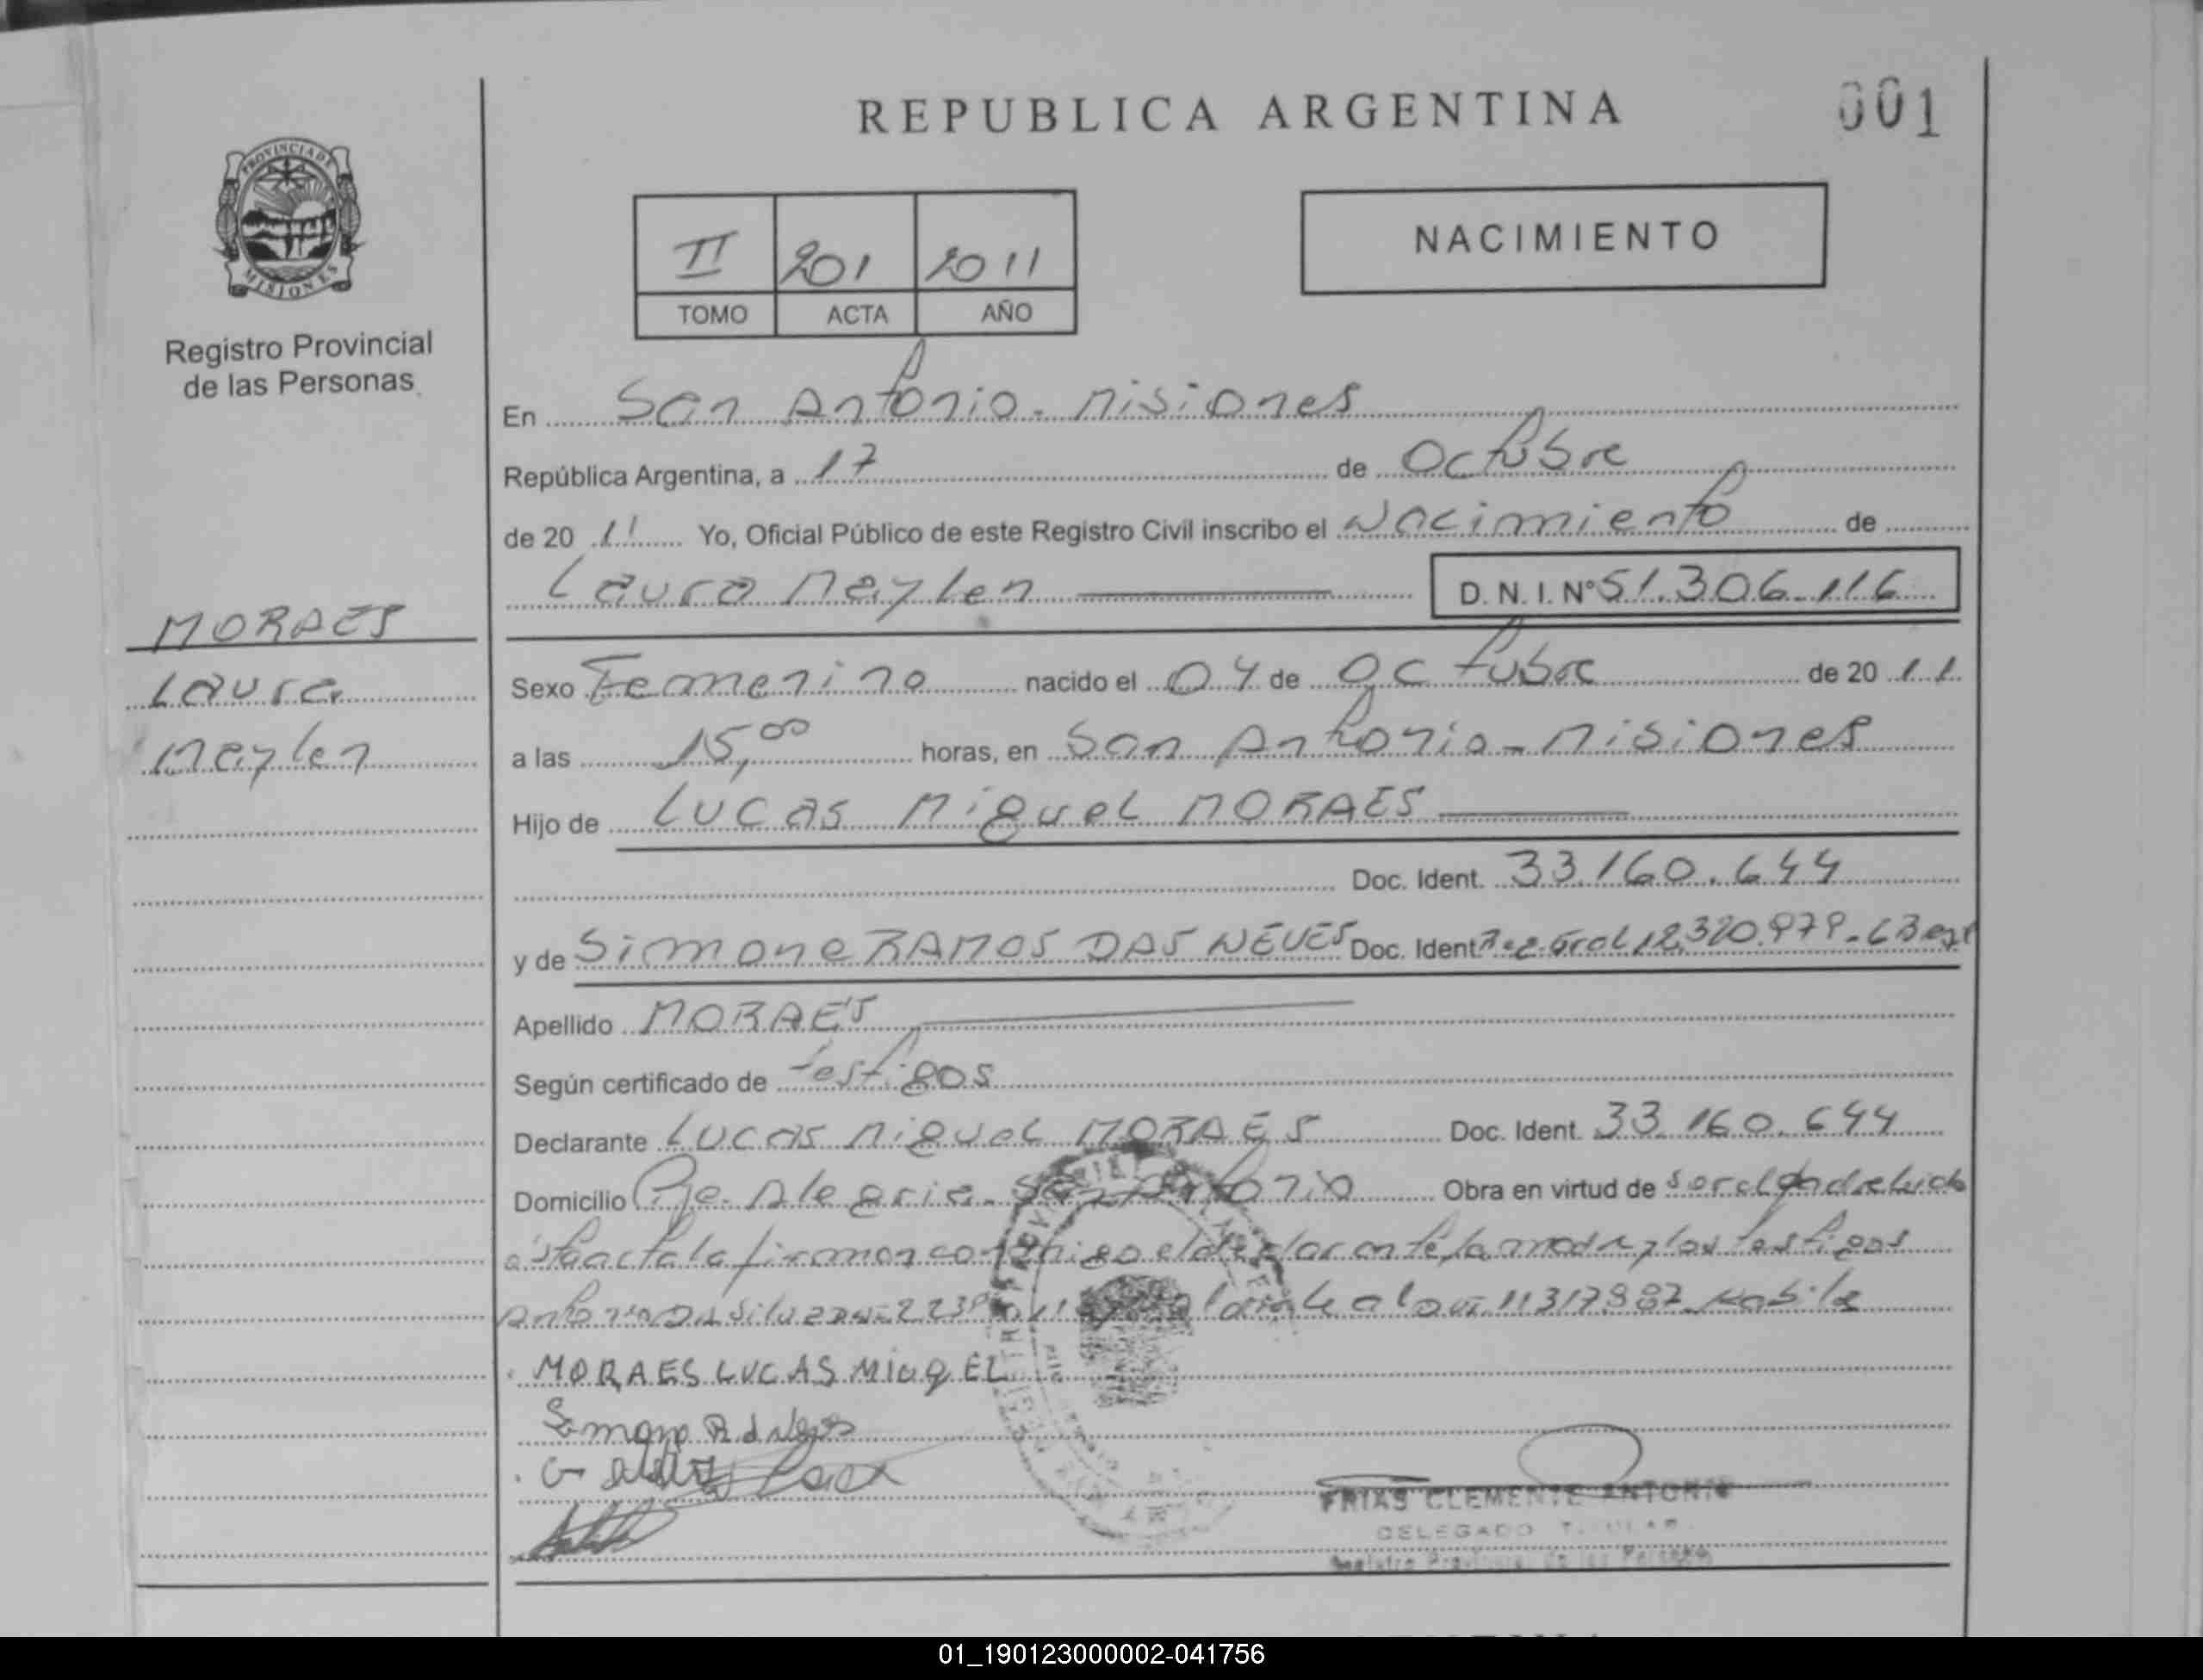 REPUBLICA ARGENTINA
001
PROVINCIA DE
MISIONES
Registro Provincial
de las Personas
II 201 2011
TOMO ACTA AÑO
NACIMIENTO
En San Antonio - Misiones
República Argentina, a 17 de Octubre
de 20 11 Yo, Oficial Público de este Registro Civil inscribo el Nacimiento de
Laura Maylen D. N. I. Nº 51.306.116
MORAES
Laura
Maylen
Sexo Femenino nacido el 04 de Octubre de 20 11
a las 15,00 horas, en San Antonio - Misiones
Hijo de Lucas Miguel MORAES
Doc. Ident. 33.160.644
y de Simone RAMOS DAS NEVES Doc. Ident. Reg. Gral 12.320.979-
Apellido MORAES
Según certificado de testigos
Declarante Lucas Miguel MORAES Doc. Ident. 33.160.644
Domicilio Pje. Alegria - San Antonio Obra en virtud de
acta la firman conmigo el declarante, la madre y los testigos
MORAES LUCAS MIGUEL
FRIAS CLEMENTE ANTONIO
DELEGADO TITULAR
Registro Provincial de las Personas
01_190123000002-041756